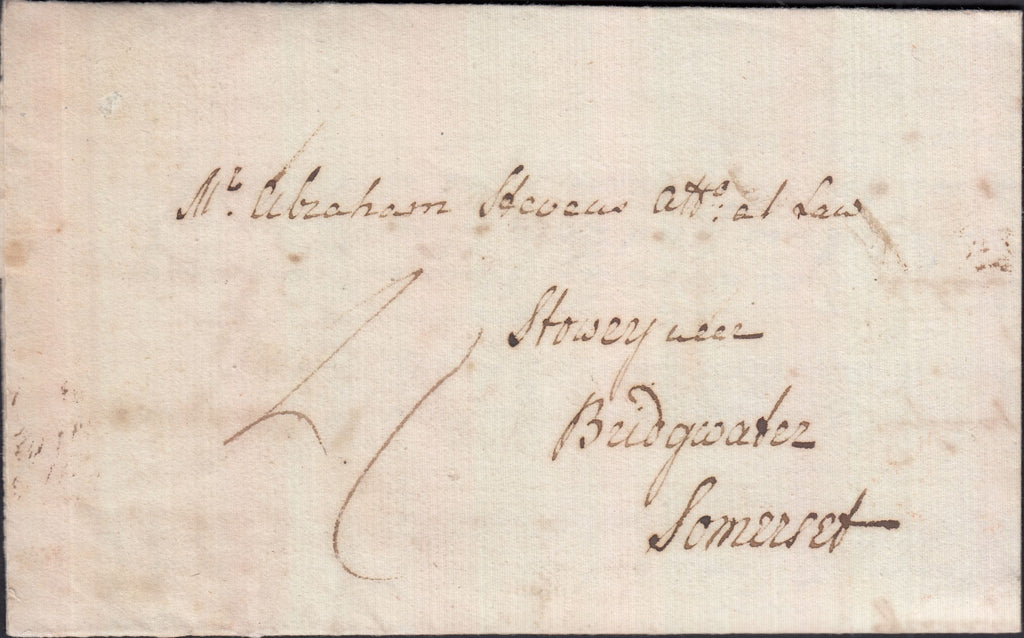 Mr. Abraham Stevens Atto. at Law
Stowey near
Bridgwater
Somerset